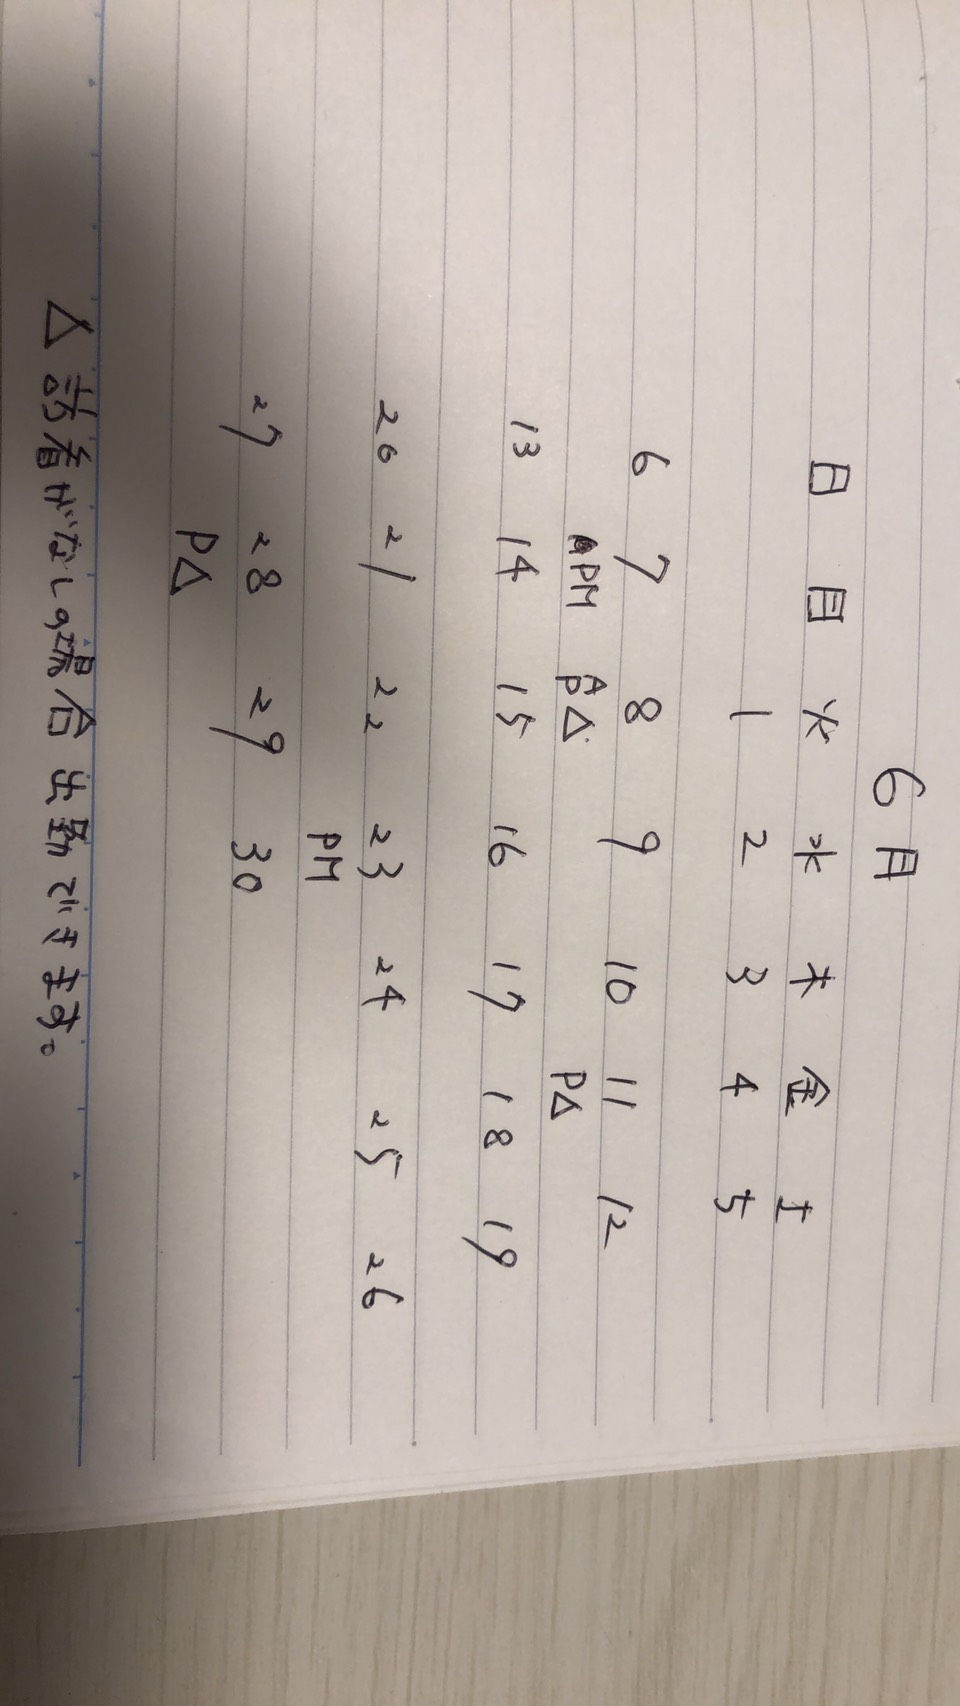 6月
日 月 火 水 木 金 土
1 2 3 4 5
6 7 8 9 10 11 12
PM A P△ P△
13 14 15 16 17 18 19
20 21 22 23 24 25 26
PM
27 28 29 30
P△
△ 訪看がなしの場合出勤できます。